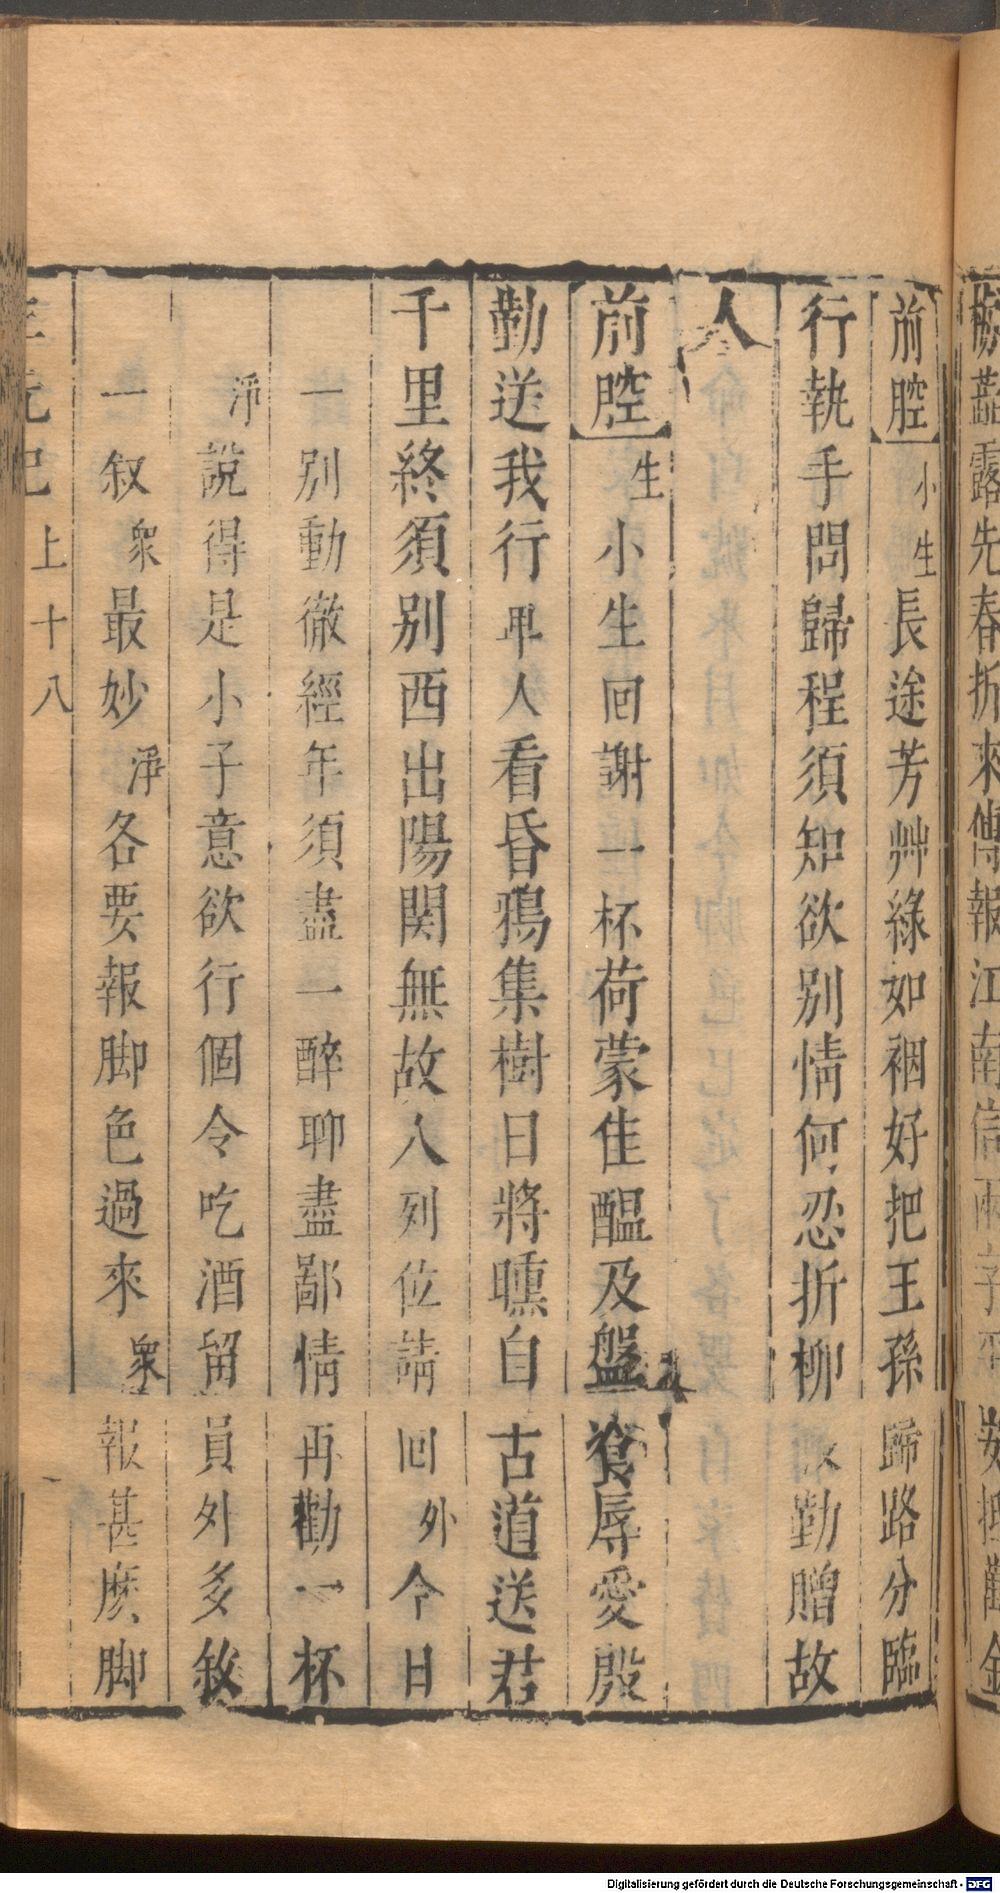 蕋露先春折來傳報江南信
前腔小生長途芳艸綠如裀好把王孫歸路分臨
行執手問歸程須知欲別情何忍折柳勤贈故
人
前腔生小生回謝一杯荷蒙佳醞及盤飧辱愛殷
勤送我行人看昏鴉集樹日將曛自古道送君
千里終須別西出陽関無故人列位請回外今日
一別動徹經年須盡一醉聊盡鄙情再勸一杯
淨說得是小子意欲行個令吃酒留員外多敘
一敘衆最妙淨各要報脚色過來衆報甚麽脚
上十八
Digitalisierung gefördert durch die Deutsche Forschungsgemeinschaft - DFG